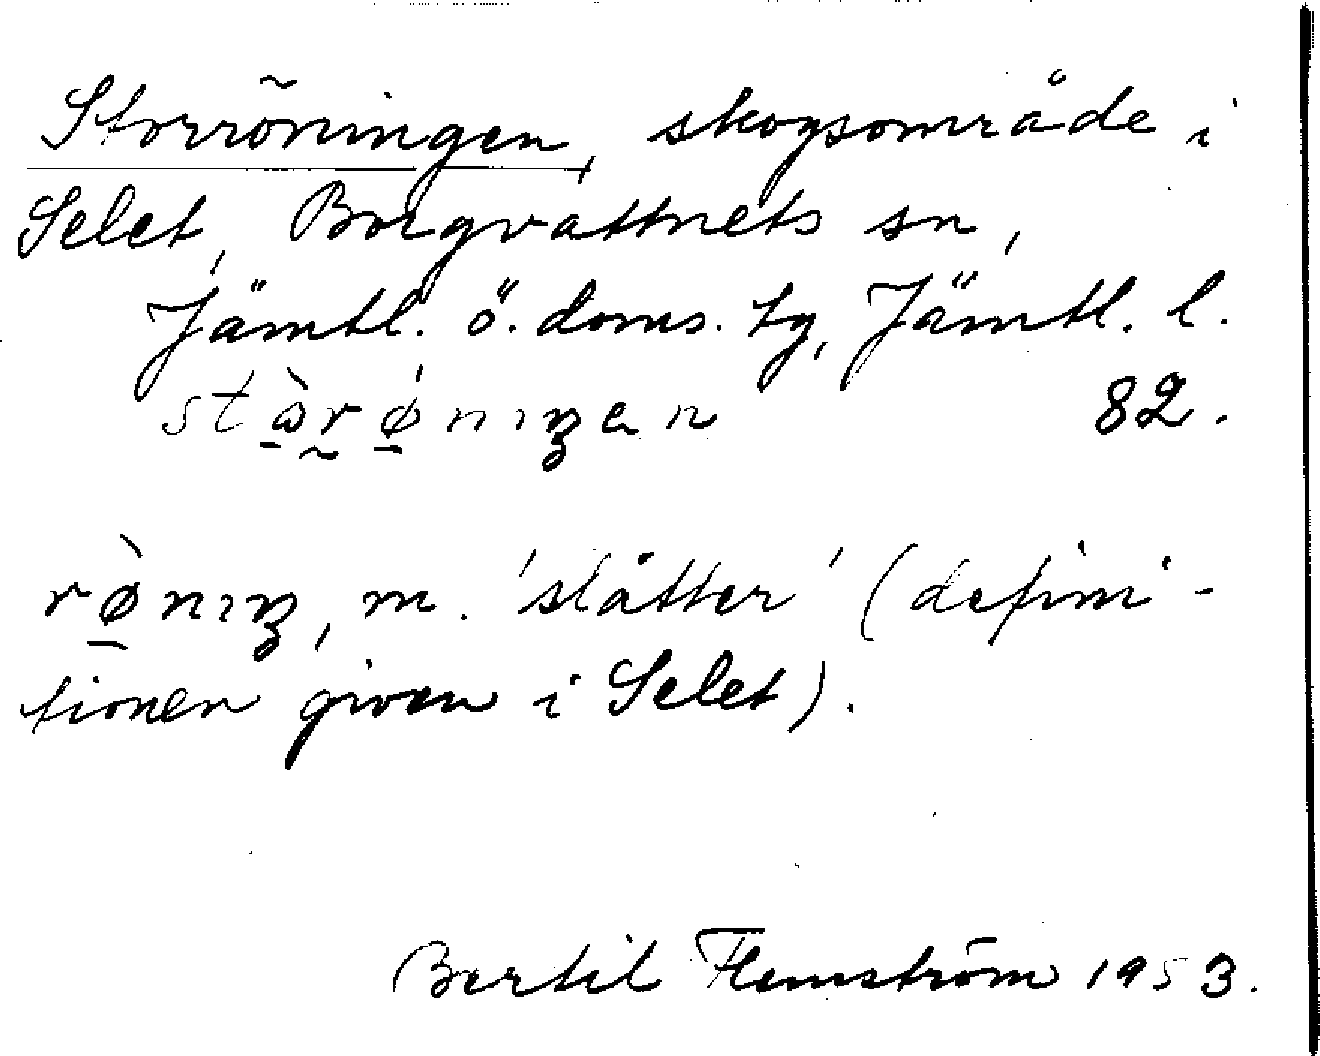 Storröningen, skogsområde i
Selet, Borgvattnets sn,
Jämtl. ö. doms. tg, Jämtl. l.
stɷ̠̀r̰ǿ̠nıŋen 82.
rø̠̀nıŋ, m. 'slåtter' (defini-
tionen given i Selet).
Bertil Flemström 1953.